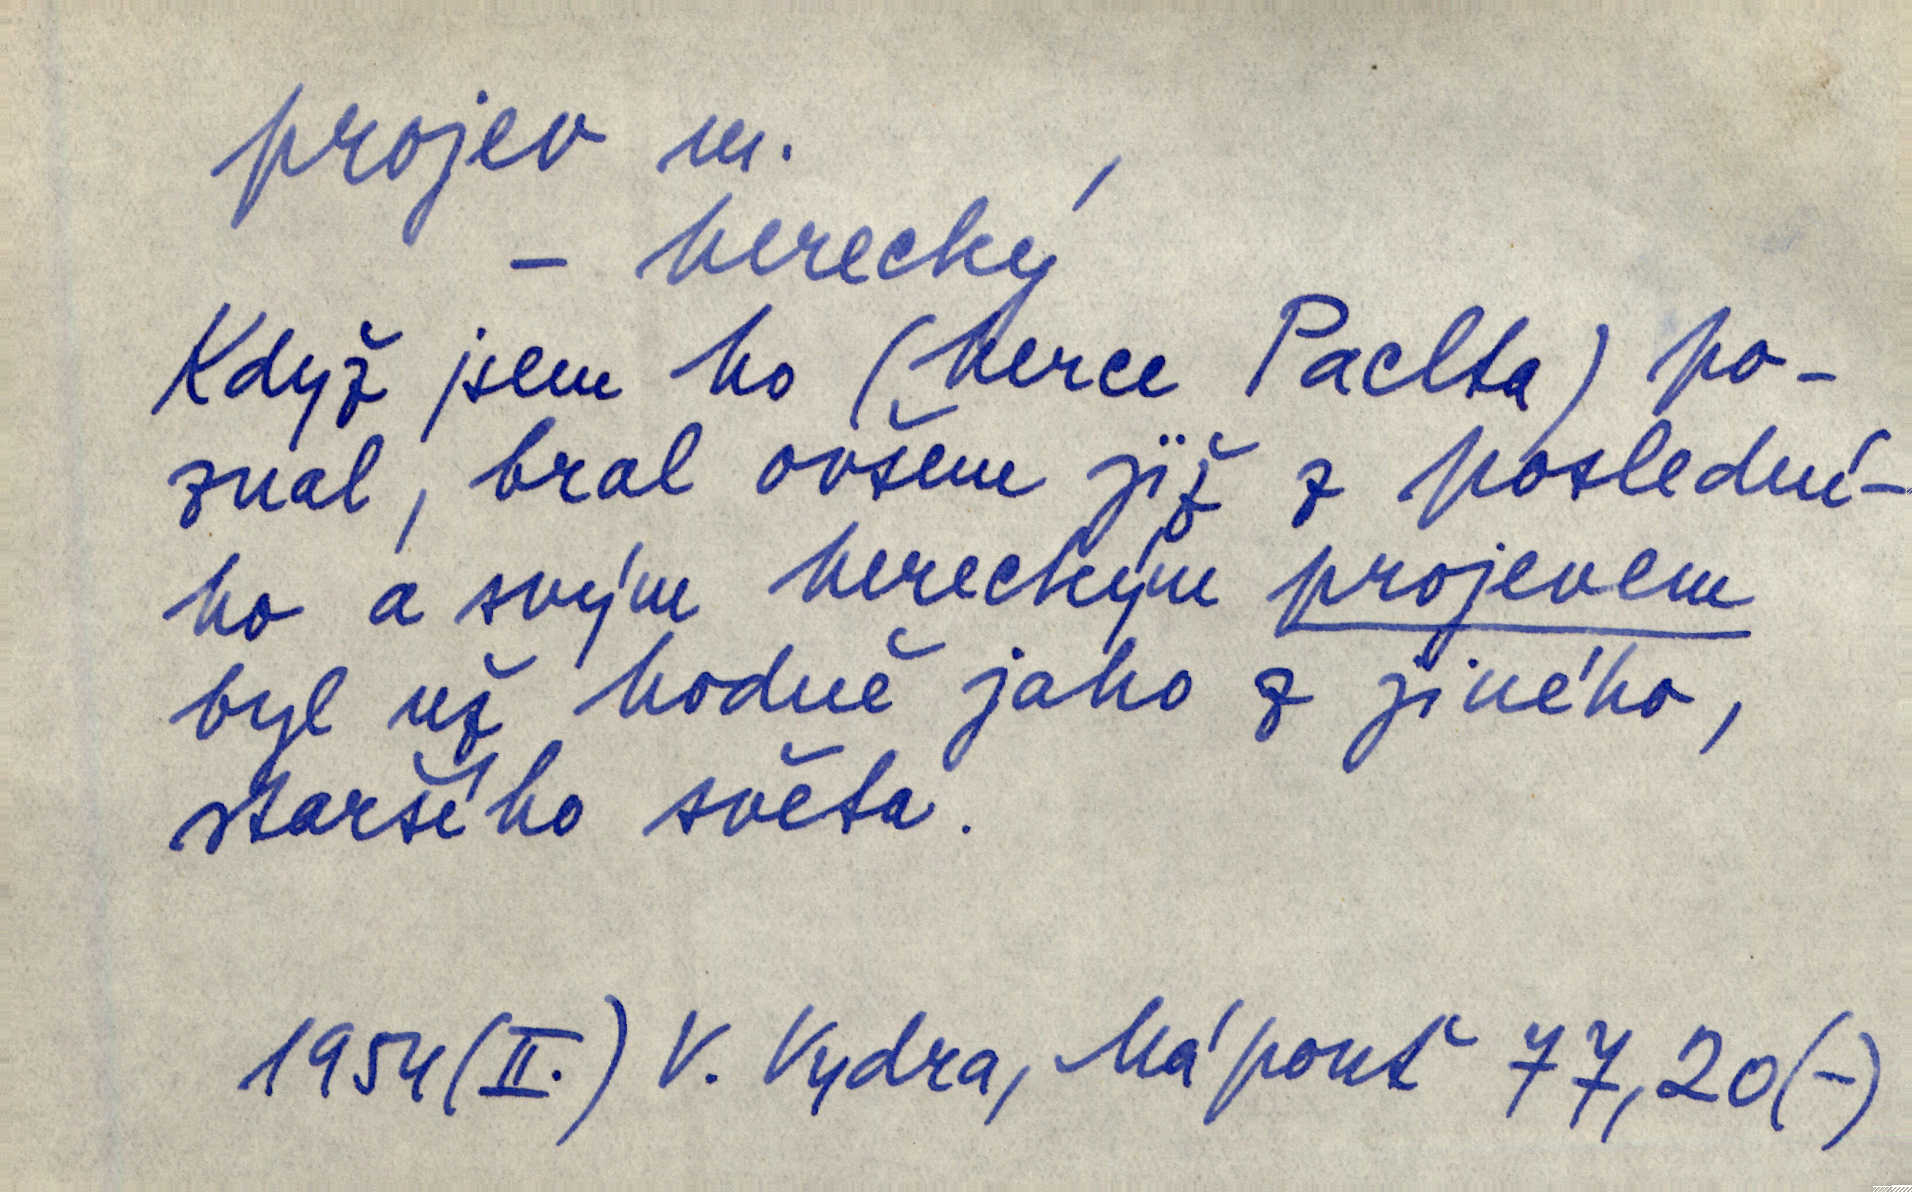 projev m.
– herecký
Když jsem ho (herce Paclta) po-
znal, bral ovšem již z poslední-
ho a svým hereckým projevem
byl už hodně jako z jiného,
staršího světa.
1954 (II.) V. Vydra, Má pouť 77, 20 (–)